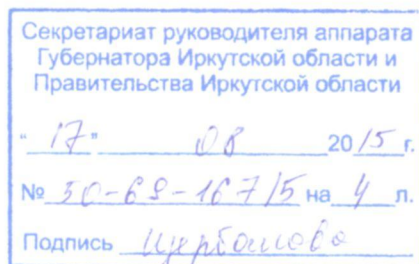 Секретариат руководителя аппарата
Губернатора Иркутской области и
Правительства Иркутской области
"17" 08 2015г.
№ 50-69-167/5 на 4 л.
Подпись